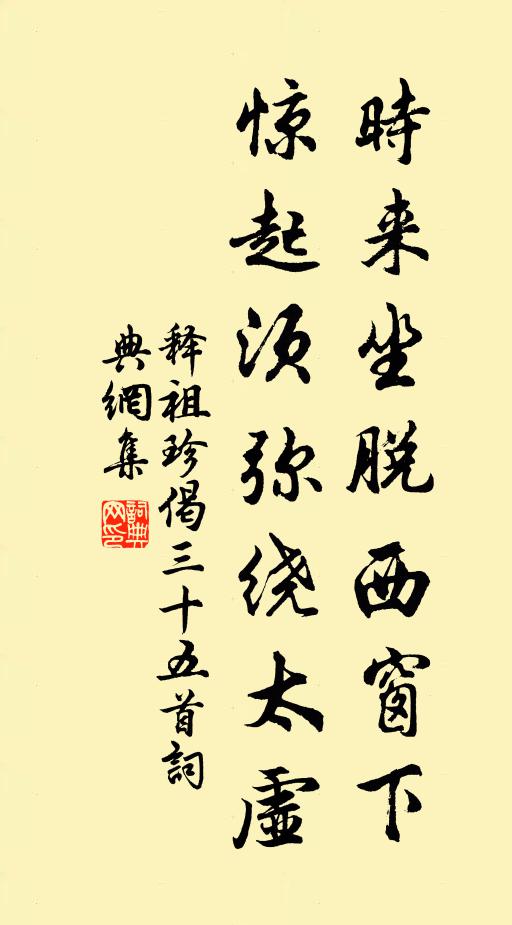 時来坐脱西窗下
惊起须弥绕太虚
释祖珍偈三十五首詞
典網集
詞典网印